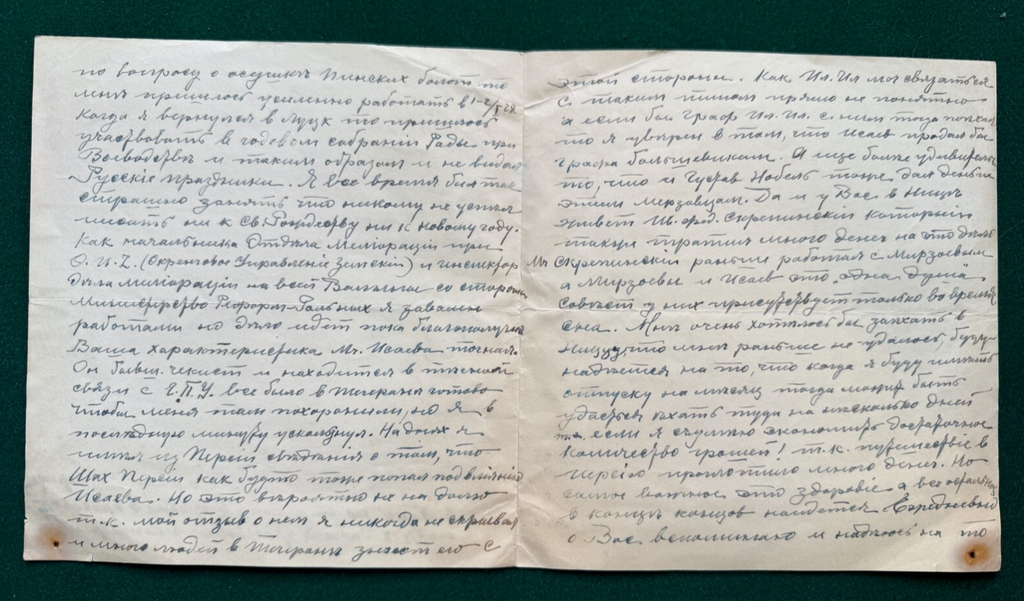 по вопросу о осушкѣ Пинских болот то
мнѣ пришлось усиленно работать в
Когда я вернулся в Луцк то пришлось
участвовать в годовом собраніи Рады при
Воеводствѣ и таким образом и не видал
Русскіе праздники. Я все время был так
страшно занят что никому не успел
писать ни к Св. Рождеству ни к новому году.
Как начальник Отдѣла Меліораціи при
О.U.Z. (Окренговом Управленіе Земскій) и инспектор
дѣла меліораціи на всей Волыни со стороны
Министерство Реформ Рольных я завален
работами но дѣло идет пока благополучно
Ваша характеристика Мг. Исаева точная.
Он больш. чекист и находится в тѣсной
связи с Г.П.У. все было в Тегеранѣ готово
чтобы меня там похоронили, но я в
последнюю минуту ускользнул. На днях я
имѣл из Персіи свѣдѣния о том, что
Шах Персіи как будто тоже попал под вліяніе
Исаева. Но это вѣроятно не на долго
т.к. мой отзыв о нем я никогда не скрывал
и много людей в Тегеранѣ знают его с
этой стороны. Как Ил. Ил мог связаться
с таким типом прямо не понятно
а если бы Граф Ил. Ил. с ним тогда поѣхал
то я увѣрен в том, что Исаев продал бы
графа большевикам. А еще болѣе удивительно
то, что и Густав Нобель тоже дал деньги
этим мерзавцам. Да и у Вас в Ниццѣ
живет Ив. Фед. Скрепинскій который
также тратил много денег на это дѣло
Мг Скрепинскій раньше работал с Мирзоевым
а Мирзоевы и Исаев это "одна душа"
совѣсть у них присутствует только во время
сна. Мнѣ очень хотѣлось бы заѣхать в
Ниццу, что мнѣ раньше не удалось, буду
надѣется на то, что когда я буду имѣть
отпуску на мѣсяц тогда может быть
удасться ѣхать туда на нѣсколько дней
т.е. если я сумѣю экономить достаточное
количество грошей! т.к. путешествіе в
Персію проглотило много денег. Но
самое важное это здоровіе а все остальное
в концѣ концов найдется Ежедневно
о Вас вспоминаю и надѣюсь на то